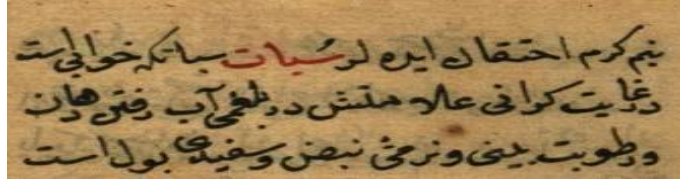 نیم کرم احتقان ایده لر سُبات سباتکه خوابی است
در غایت کرانی علامتش در بلغمی آب رفتن دهان
و رطوبت بینی و نرمئ نبض و سفیدی بول است